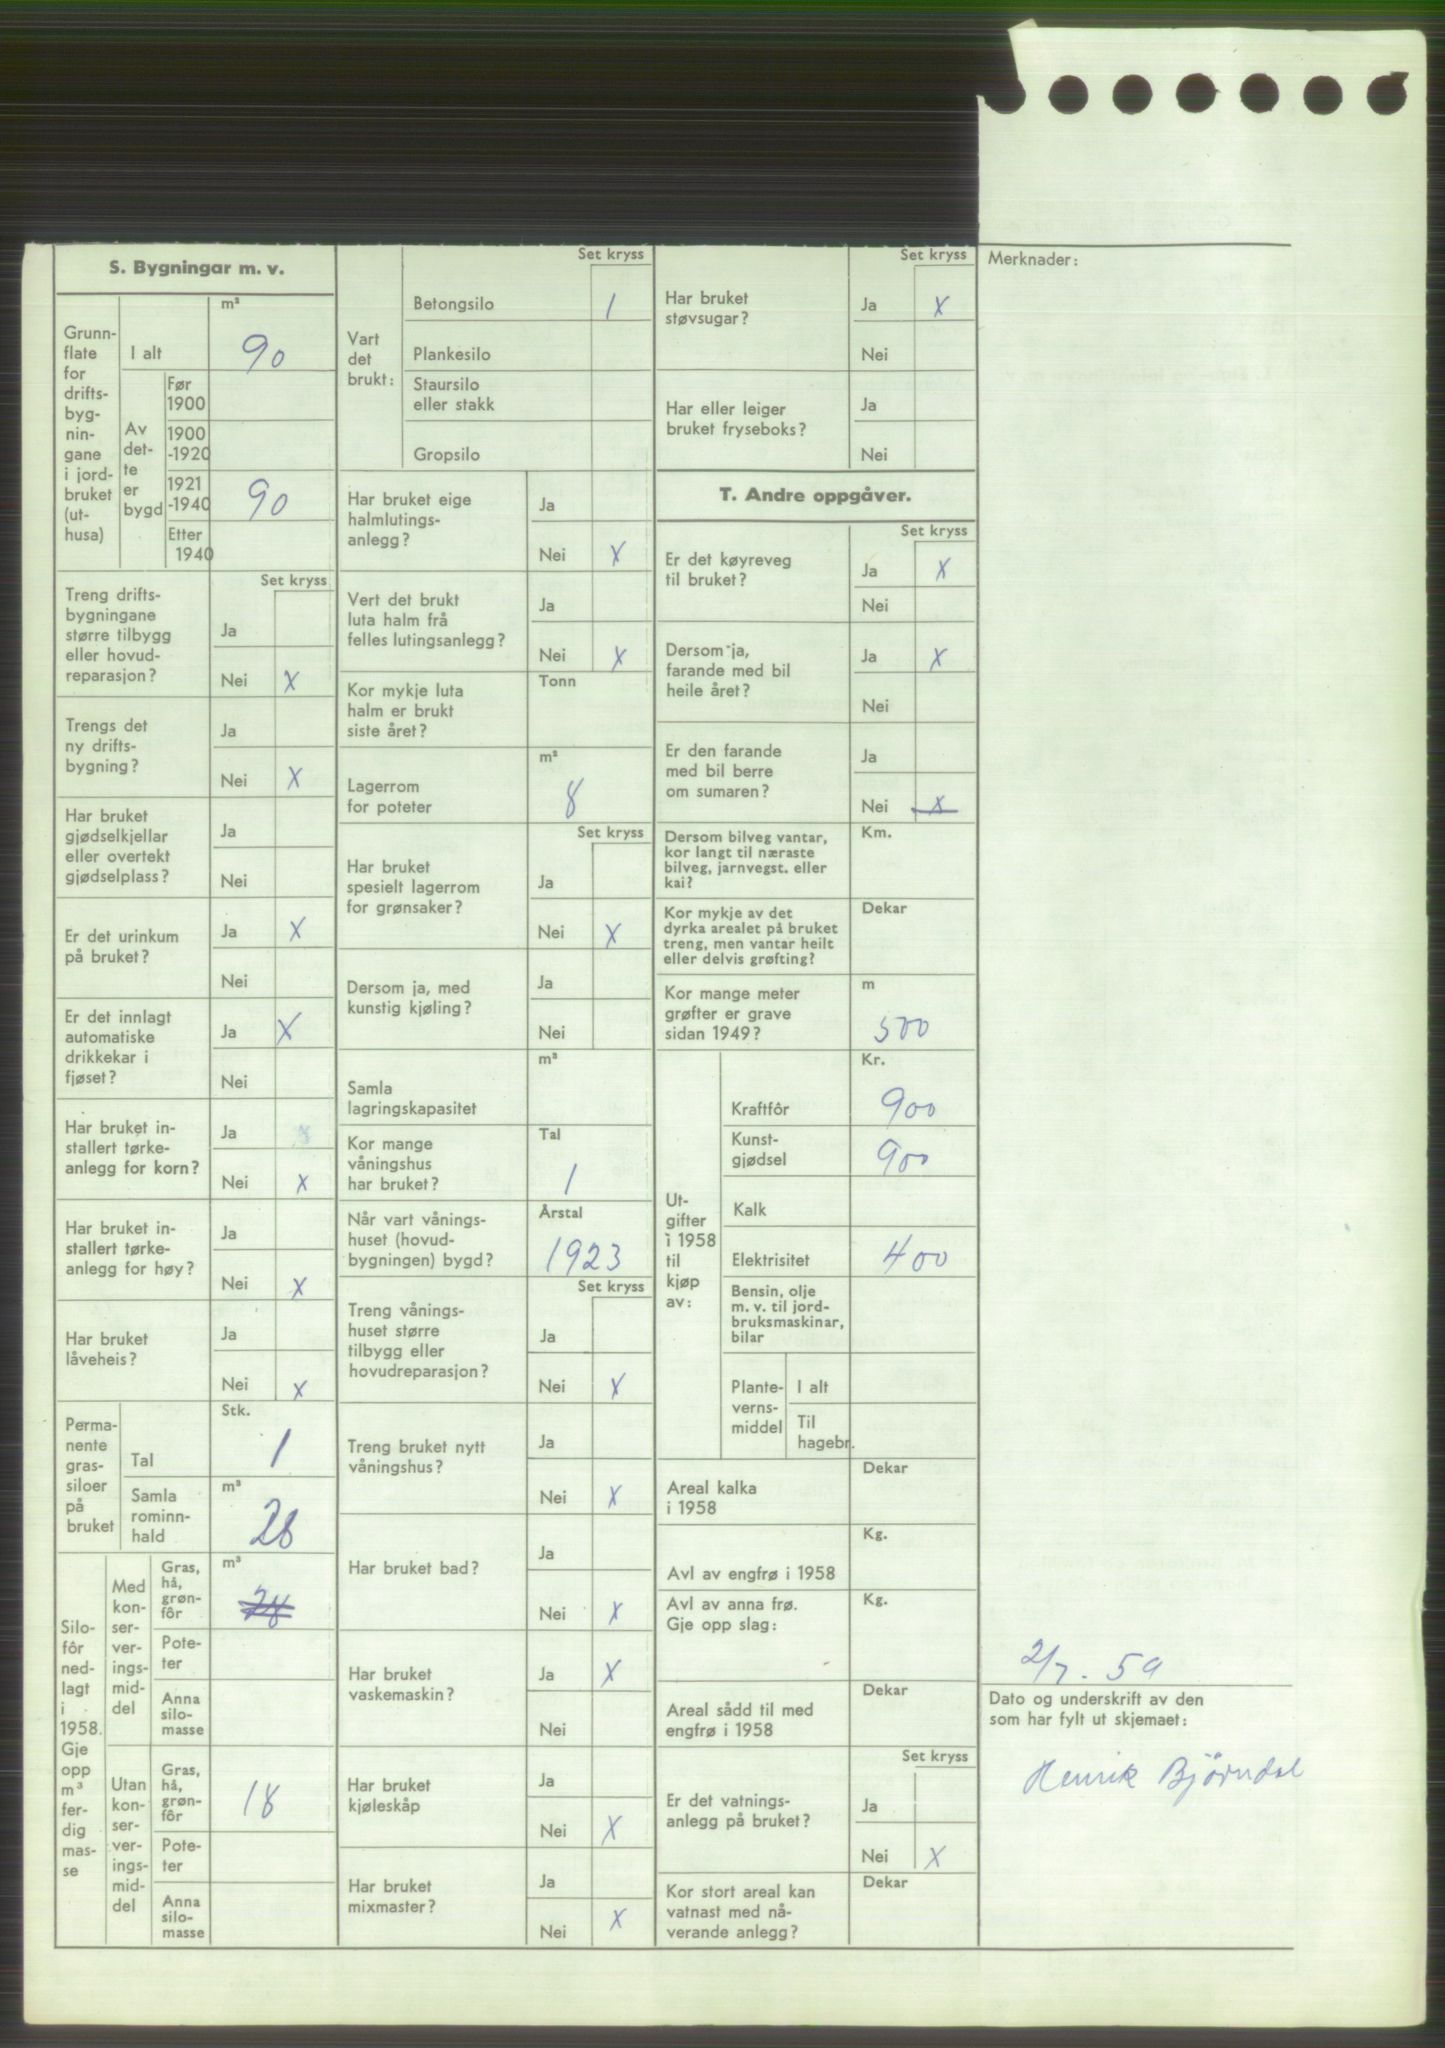 S. Bygningar m. v.
Grunn-
flate
for
drifts-
byg-
nin-
gane
i jord-
bruket
(ut-
husa)
m²
I alt
90
Av
det-
te
er
bygd
Før
1900
1900
-1920
1921
-1940
90
Etter
1940
Set kryss
Treng drifts-
bygningane
større tilbygg
eller hovud-
reparasjon?
Ja
Nei X
Trengs det
ny drifts-
bygning?
Ja
Nei X
Har bruket
gjødselkjellar
eller overtekt
gjødselplass?
Ja
Nei
Er det urinkum
på bruket?
Ja X
Nei
Er det innlagt
automatiske
drikkekar i
fjøset?
Ja X
Nei
Har bruket in-
stallert tørke-
anlegg for korn?
Ja
Nei X
Har bruket in-
stallert tørke-
anlegg for høy?
Ja
Nei X
Har bruket
låveheis?
Ja
Nei X
Perma-
nente
gras-
siloer
på
bruket
Stk.
Tal
1
Samla
rominn-
hald
m³
28
Silo-
fôr
ned-
lagt
i
1958.
Gje
opp
m³
fer-
dig
mas-
se
Med
kon-
ser-
ver-
ings-
mid-
del
Gras,
hå,
grøn-
fôr
m³
28
Pote-
ter
Anna
silo-
masse
Utan
kon-
ser-
ver-
ings-
mid-
del
Gras,
hå,
grøn-
fôr
18
Pote-
ter
Anna
silo-
masse
Set kryss
Vart
det
brukt:
Betongsilo 1
Plankesilo
Staursilo
eller stakk
Gropsilo
Har bruket eige
halmlutings-
anlegg?
Ja
Nei X
Vert det brukt
luta halm frå
felles lutingsanlegg?
Ja
Nei X
Kor mykje luta
halm er brukt
siste året?
Tonn
Lagerrom
for poteter
m²
8
Set kryss
Har bruket
spesielt lagerrom
for grønsaker?
Ja
Nei X
Dersom ja, med
kunstig kjøling?
Ja
Nei
Samla
lagringskapasitet
m³
Kor mange
våningshus
har bruket?
Tal
1
Når vart vånings-
huset (hovud-
bygningen) bygd?
Årstal
1923
Set kryss
Treng vånings-
huset større
tilbygg eller
hovudreparasjon?
Ja
Nei X
Treng bruket nytt
våningshus?
Ja
Nei X
Har bruket bad?
Ja
Nei X
Har bruket
vaskemaskin?
Ja X
Nei
Har bruket
kjøleskåp
Ja
Nei X
Har bruket
mixmaster?
Ja
Nei X
Set kryss
Har bruket
støvsugar?
Ja X
Nei
Har eller leiger
bruket fryseboks?
Ja
Nei
T. Andre oppgåver.
Set kryss
Er det køyreveg
til bruket?
Ja X
Nei
Dersom ja,
farande med bil
heile året?
Ja X
Nei
Er den farande
med bil berre
om sumaren?
Ja
Nei X
Dersom bilveg vantar,
kor langt til næraste
bilveg, jarnvegst. eller
kai?
Km.
Kor mykje av det
dyrka arealet på bruket
treng, men vantar heilt
eller delvis grøfting?
Dekar
Kor mange meter
grøfter er grave
sidan 1949?
m
500
Ut-
gifter
i 1958
til
kjøp
av:
Kr.
Kraftfôr 900
Kunst-
gjødsel 900
Kalk
Elektrisitet 400
Bensin, olje
m. v. til jord-
bruksmaskinar,
bilar
Plante-
verns-
middel
I alt
Til
hagebr.
Areal kalka
i 1958
Dekar
Avl av engfrø i 1958
Kg.
Avl av anna frø.
Gje opp slag:
Kg.
Areal sådd til med
engfrø i 1958
Dekar
Set kryss
Er det vatnings-
anlegg på bruket?
Ja
Nei X
Kor stort areal kan
vatnast med nå-
verande anlegg?
Dekar
Merknader:
2/7. 59
Dato og underskrift av den
som har fylt ut skjemaet:
Henrik Bjørndal